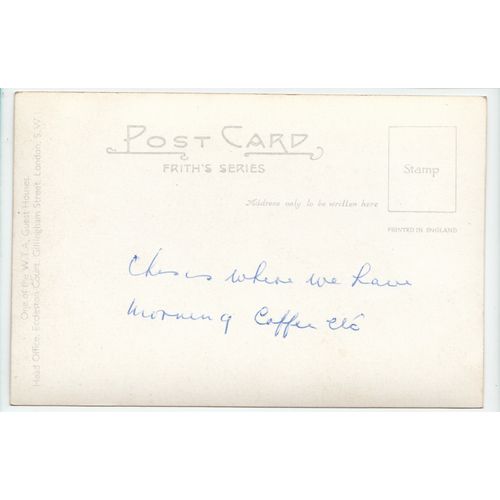 POST CARD
FRITH'S SERIES
Stamp
Address only to be written here
PRINTED IN ENGLAND
This is where we have
Morning Coffee etc
One of the W.T.A. Guest Houses.
Head Office, Eccleston Court, Gillingham Street, London, S.W.